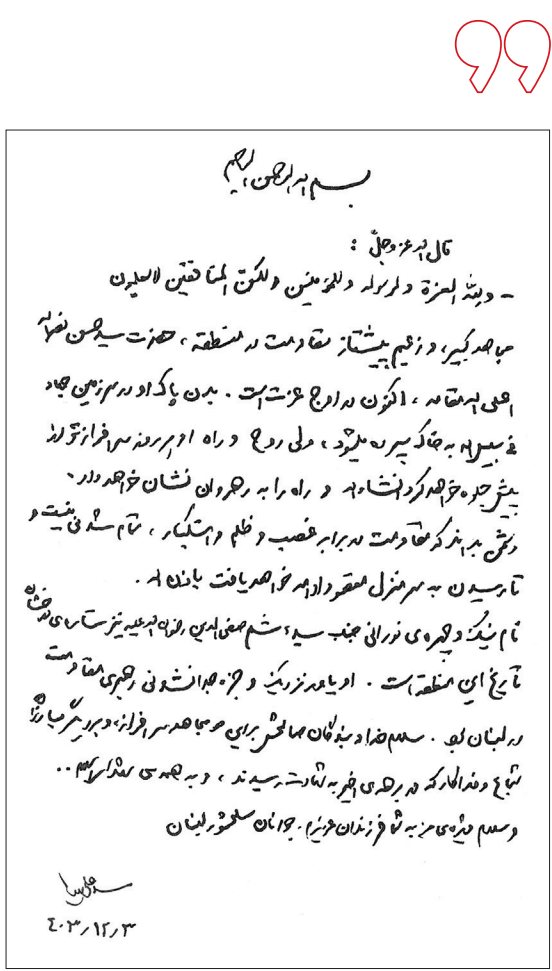 بسم الله الرحمن الرحیم
قال الله عز و جلّ :
- ولِلّٰه العزة و لرسوله و للمؤمنین و لکنّ المنافقین لا یعلمون
مجاهد کبیر، و زعیم پیشتاز مقاومت در منطقه، حضرت سید حسن نصرالله
اعلی الله مقامه، اکنون در اوج عزت است. بدن پاک او در سرزمین جهاد
فی سبیل الله به خاک سپرده میشود، ولی روح و راه او هر روز سرافرازتر از
پیش جلوه خواهد کرد انشاءالله و راه را به رهروان نشان خواهد داد.
دشمن بداند که مقاومت در برابر غصب و ظلم و استکبار، تمام شدنی نیست و
تا رسیدن به سرمنزل مقصود ادامه خواهد یافت باذن الله.
نام نیک و چهره‌ی نورانی جناب سید هاشم صفی الدین رضوان الله علیه نیز ستاره‌ی درخشان
تاریخ این منطقه است. او یاور نزدیک و جزء جدانشدنی رهبری مقاومت
در لبنان بود. سلام خدا و بندگان صالحش بر این دو مجاهد سرافراز، و بر دیگر مبارزان
شجاع و فداکار که در برهه‌ی اخیر به شهادت رسیدند، و به همه‌ی شهدای اسلام..
و سلام ویژه‌ی من به شما فرزندان عزیزم، جوانان سلحشور لبنان
سید علی خامنه‌ای
۴۰۳/۱۲/۳